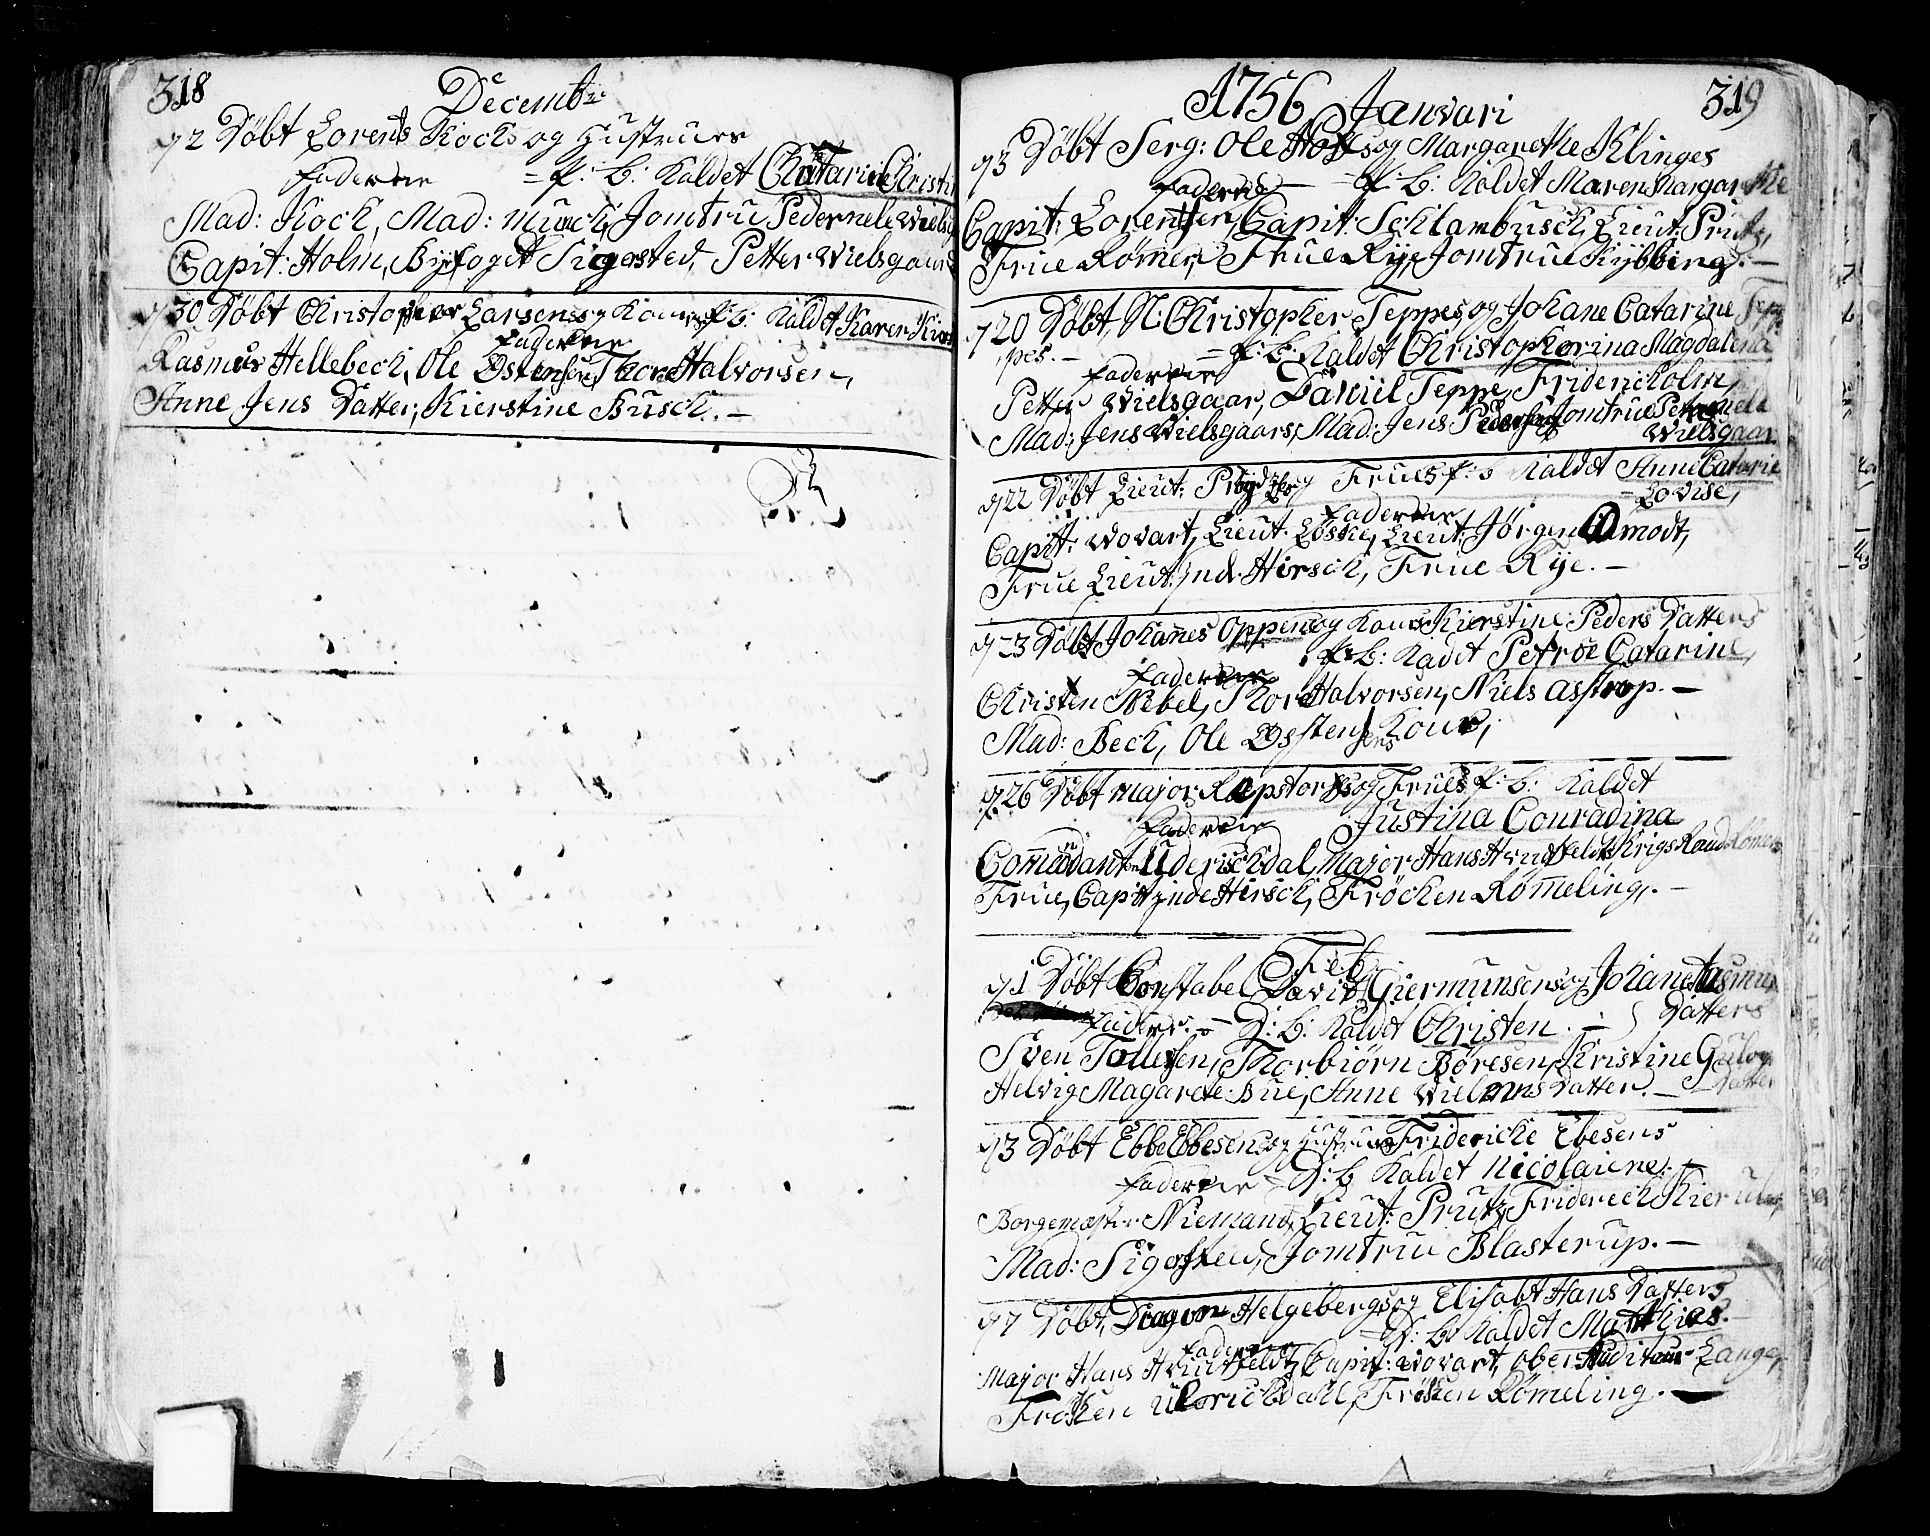 318
Decembr
72 Döbt Lorents Kocks og Hustrues
Faderne = P: B: Kaldet Chatarine Christin
Mad: Kock, Mad: Munck, Jomfru Pedernele Wielsg
Capit: Holm, Byefoget Sigested, Petter Wielsgaard
730 Döbt Christopher Larsens og Kones P: B: Kaldet Karen Kirs
Faderne
Rasmus Hellebeck, Ole Ostensen, Thore Halvorsen,
Anne Jens Datter, Kierstine Busck. -
1756 Janvari
319
73 Döbt Serg: Ole Hofs og Margarethe Klinges
Faderne = P: B: Kaldet Maren Margarethe
Capit: Lorentzen, Capit: Schlambusch, Lieut: Prutz,
Frue Rømer, Frue Rye, Jomfrue Kybberg. -
720 Döbt, N: Christopher Teppes og Johane Catarine Tep
pes. - = P: B: Kaldet Christophorina Magdalena
Faderne
Petter Wielsgaar, Daniel Teppe, Friderich Holm,
Mad: Jens Wielsgaars, Mad: Jens Pedersens, Jomfrue Petronele
Wielsgaar
722 Döbt Lieut: og Frues P: B Kaldet Anne Catarine
Lovise,
Faderne
Capit: Wovart, Lieut: Löske, Lieut: Jørgen Omodt,
Frue Lieut:inde Hirsch, Frue Rye. -
723 Döbt Johannes Oppens og Kones Kierstine Peders Datters
P: B: Kadet Petroe Catarine,
Faderne
Christen Nebel, Thore Halvorsen, Niels Astrop. -
Mad: Beck, Ole Ostensens Kone,
726 Döbt Major Raepstorfs og Frues P: B: Kaldet
Justina Conradina
Faderne
Commandant Ulderischdal, Major Hans Hvidtfeldt, Krigs Raad Römers
Frue, Capit:inde Hirsch, Fröcken Rømeling,. -
Feb
71 Döbt Constabel David Giermunsens og Johane Rasmus
Datters
Fadere. - D: B: Kaldet Christen. -
Sven Tollefsen, Thorbiörn Børesen, Kristine Gulov
Datter
Helvig Magarete Bue, Anne Wielems Datter. -
73 Döbt Ebbe Ebbesens og Hustrues Fridericke Ebesens
Faderne = D: B Kaldet Nicolaiene. -
Borgemester Niemand, Lieut: Prutz, Friderich Kierulf,
Mad: Sigested, Jomfrue Blasterup. -
77 Döbt, Dragon Helgebergs og Elisabt Hans Datters
Faderne = D: B: Kaldet Matthias. -
Major Hans Hvidtfeldt, Capit: Wovart, Ober Auditeur Lange,
Fröken Ulerichsdahl, Fröken Römeling. -